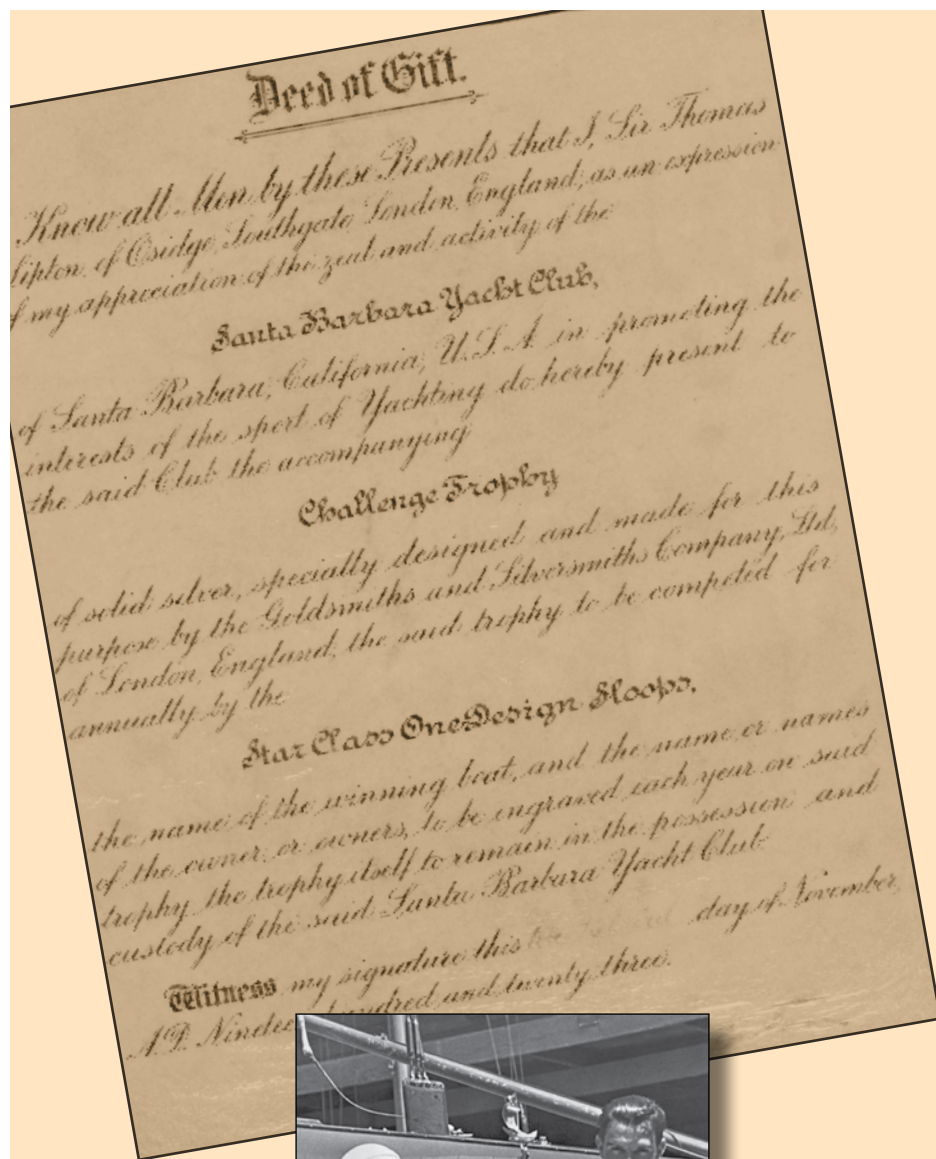 Deed of Gift.
Know all Men by these Presents that I, Sir Thomas
Lipton, of Osidge, Southgate, London, England, as an expression
of my appreciation of the zeal and activity of the
Santa Barbara Yacht Club,
of Santa Barbara, California, U.S.A. in promoting the
interests of the sport of Yachting do hereby present to
the said Club the accompanying
Challenge Trophy
of solid silver, specially designed and made for this
purpose by the Goldsmiths and Silversmiths Company, Ltd,
of London, England, the said trophy to be competed for
annually by the
Star Class One Design Sloops,
the name of the winning boat, and the name or names
of the owner or owners, to be engraved each year on said
trophy the trophy itself to remain in the possession and
custody of the said Santa Barbara Yacht Club
Witness my signature this day of November,
A.D. Nineteen hundred and twenty three.